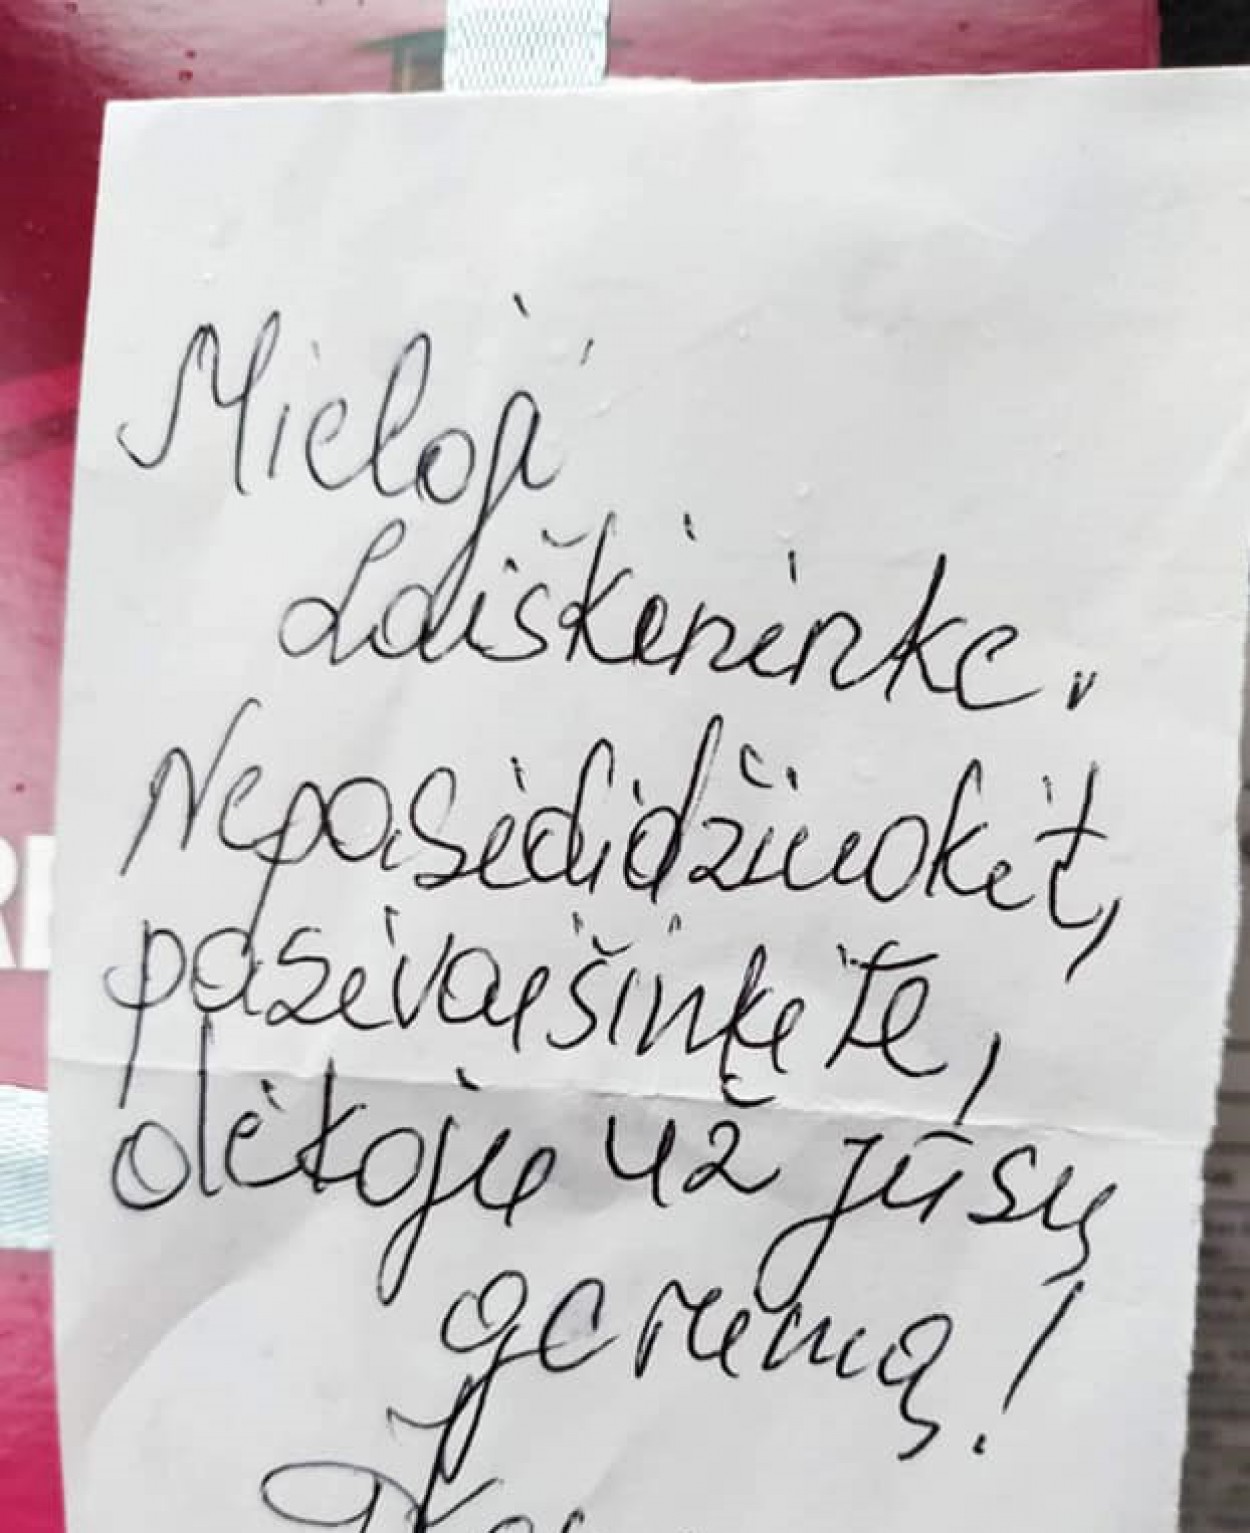 Mieloji
Laiškininke.
Nepasididžiuokit,
pasivaišinkite,
dėkoju už jūsų
gerumą!